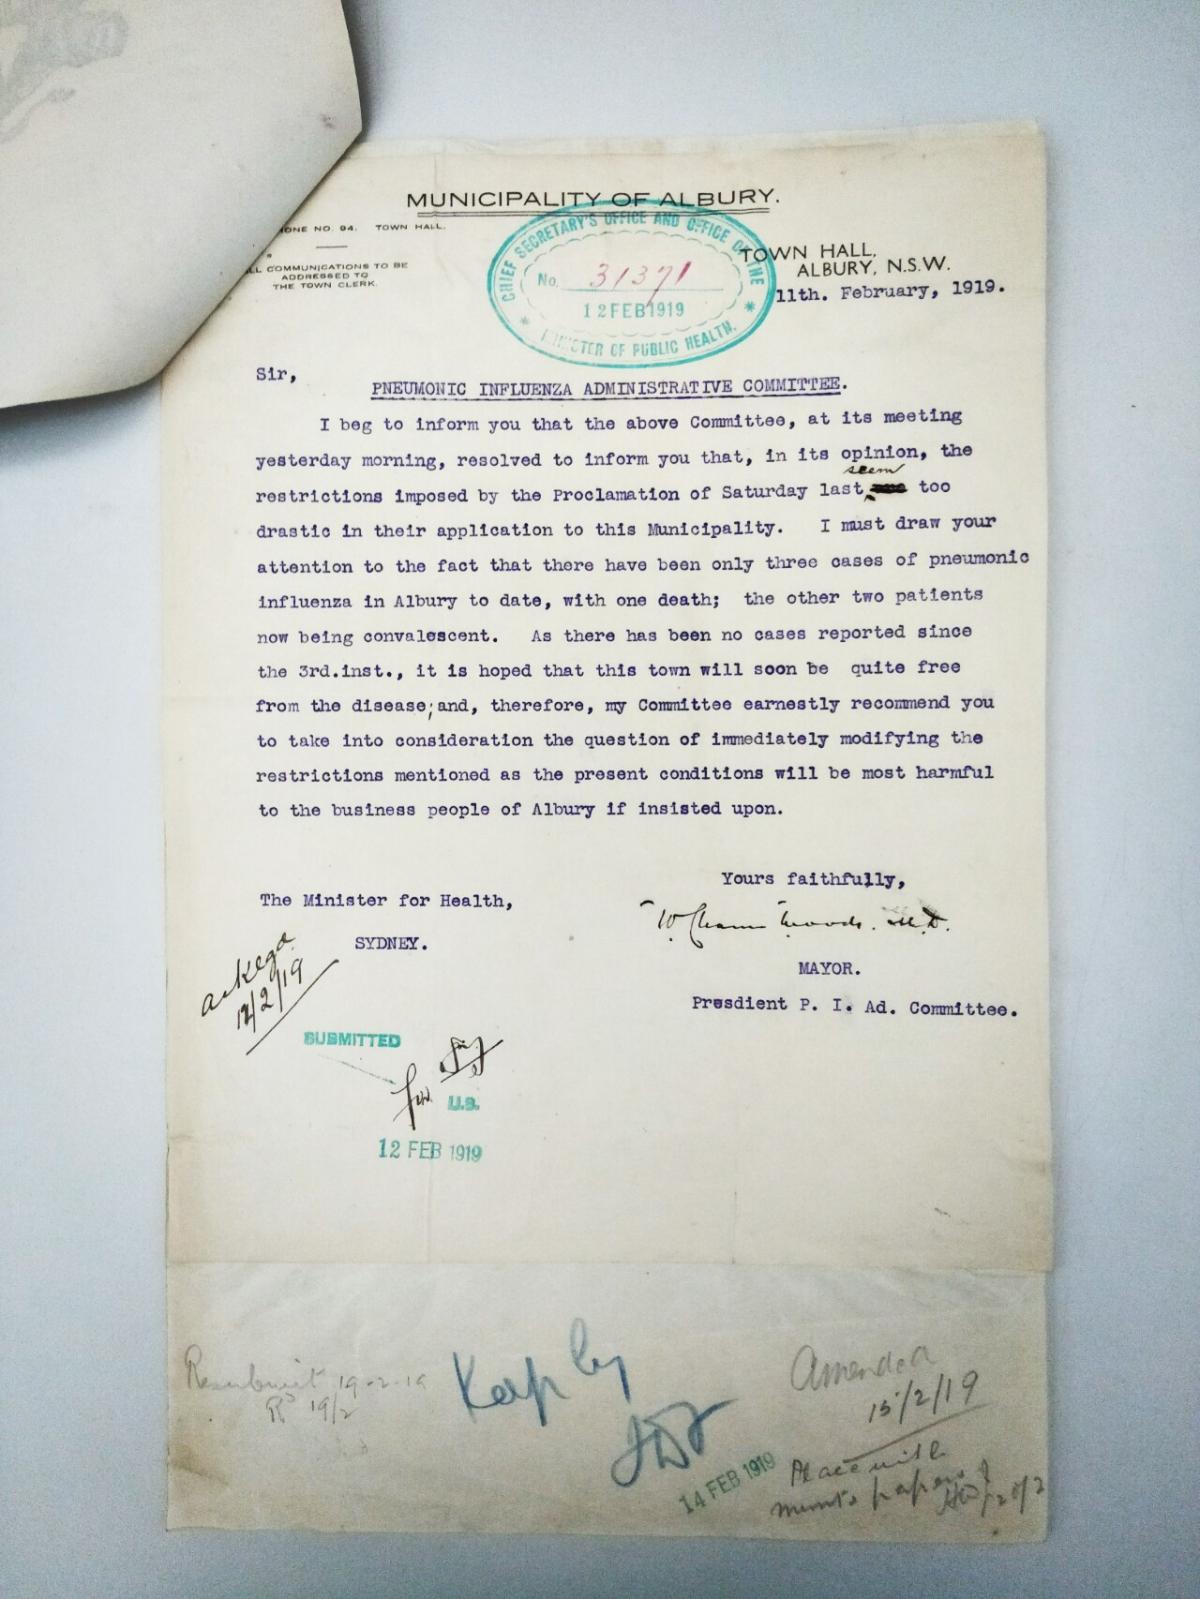 MUNICIPALITY OF ALBURY.
ONE NO. 94. TOWN HALL.
LL COMMUNICATIONS TO BE
ADDRESSED TO
THE TOWN CLERK.
CHIEF SECRETARY'S OFFICE AND OFFICE OF THE
No. 31371
12 FEB 1919
MINISTER OF PUBLIC HEALTH.
TOWN HALL,
ALBURY, N.S.W.
11th. February, 1919.
Sir,
PNEUMONIC INFLUENZA ADMINISTRATIVE COMMITTEE.
I beg to inform you that the above Committee, at its meeting
yesterday morning, resolved to inform you that, in its opinion, the
seem
restrictions imposed by the Proclamation of Saturday last, too
drastic in their application to this Municipality. I must draw your
attention to the fact that there have been only three cases of pneumonic
influenza in Albury to date, with one death; the other two patients
now being convalescent. As there has been no cases reported since
the 3rd.inst., it is hoped that this town will soon be quite free
from the disease;and, therefore, my Committee earnestly recommend you
to take into consideration the question of immediately modifying the
restrictions mentioned as the present conditions will be most harmful
to the business people of Albury if insisted upon.
Yours faithfully,
The Minister for Health,
SYDNEY.
W. Cleaver Woods. M.D.
MAYOR.
Presdient P. I. Ad. Committee.
ackegd
12/2/19
SUBMITTED
for
U.S.
12 FEB 1919
Resubmit 19-2-19
19/2
Keep by
14 FEB 1919
Amended
15/2/19
Place with
papers